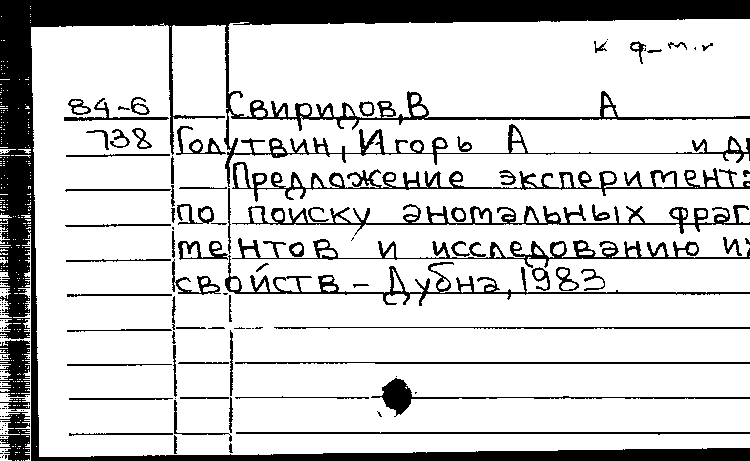 84-6 Свиридов, В А
738 Голутвин, Игорь А и др
Предложение эксперимента
по поиску аномальных фраг
ментов и исследованию их
свойств - Дубна, 1983.